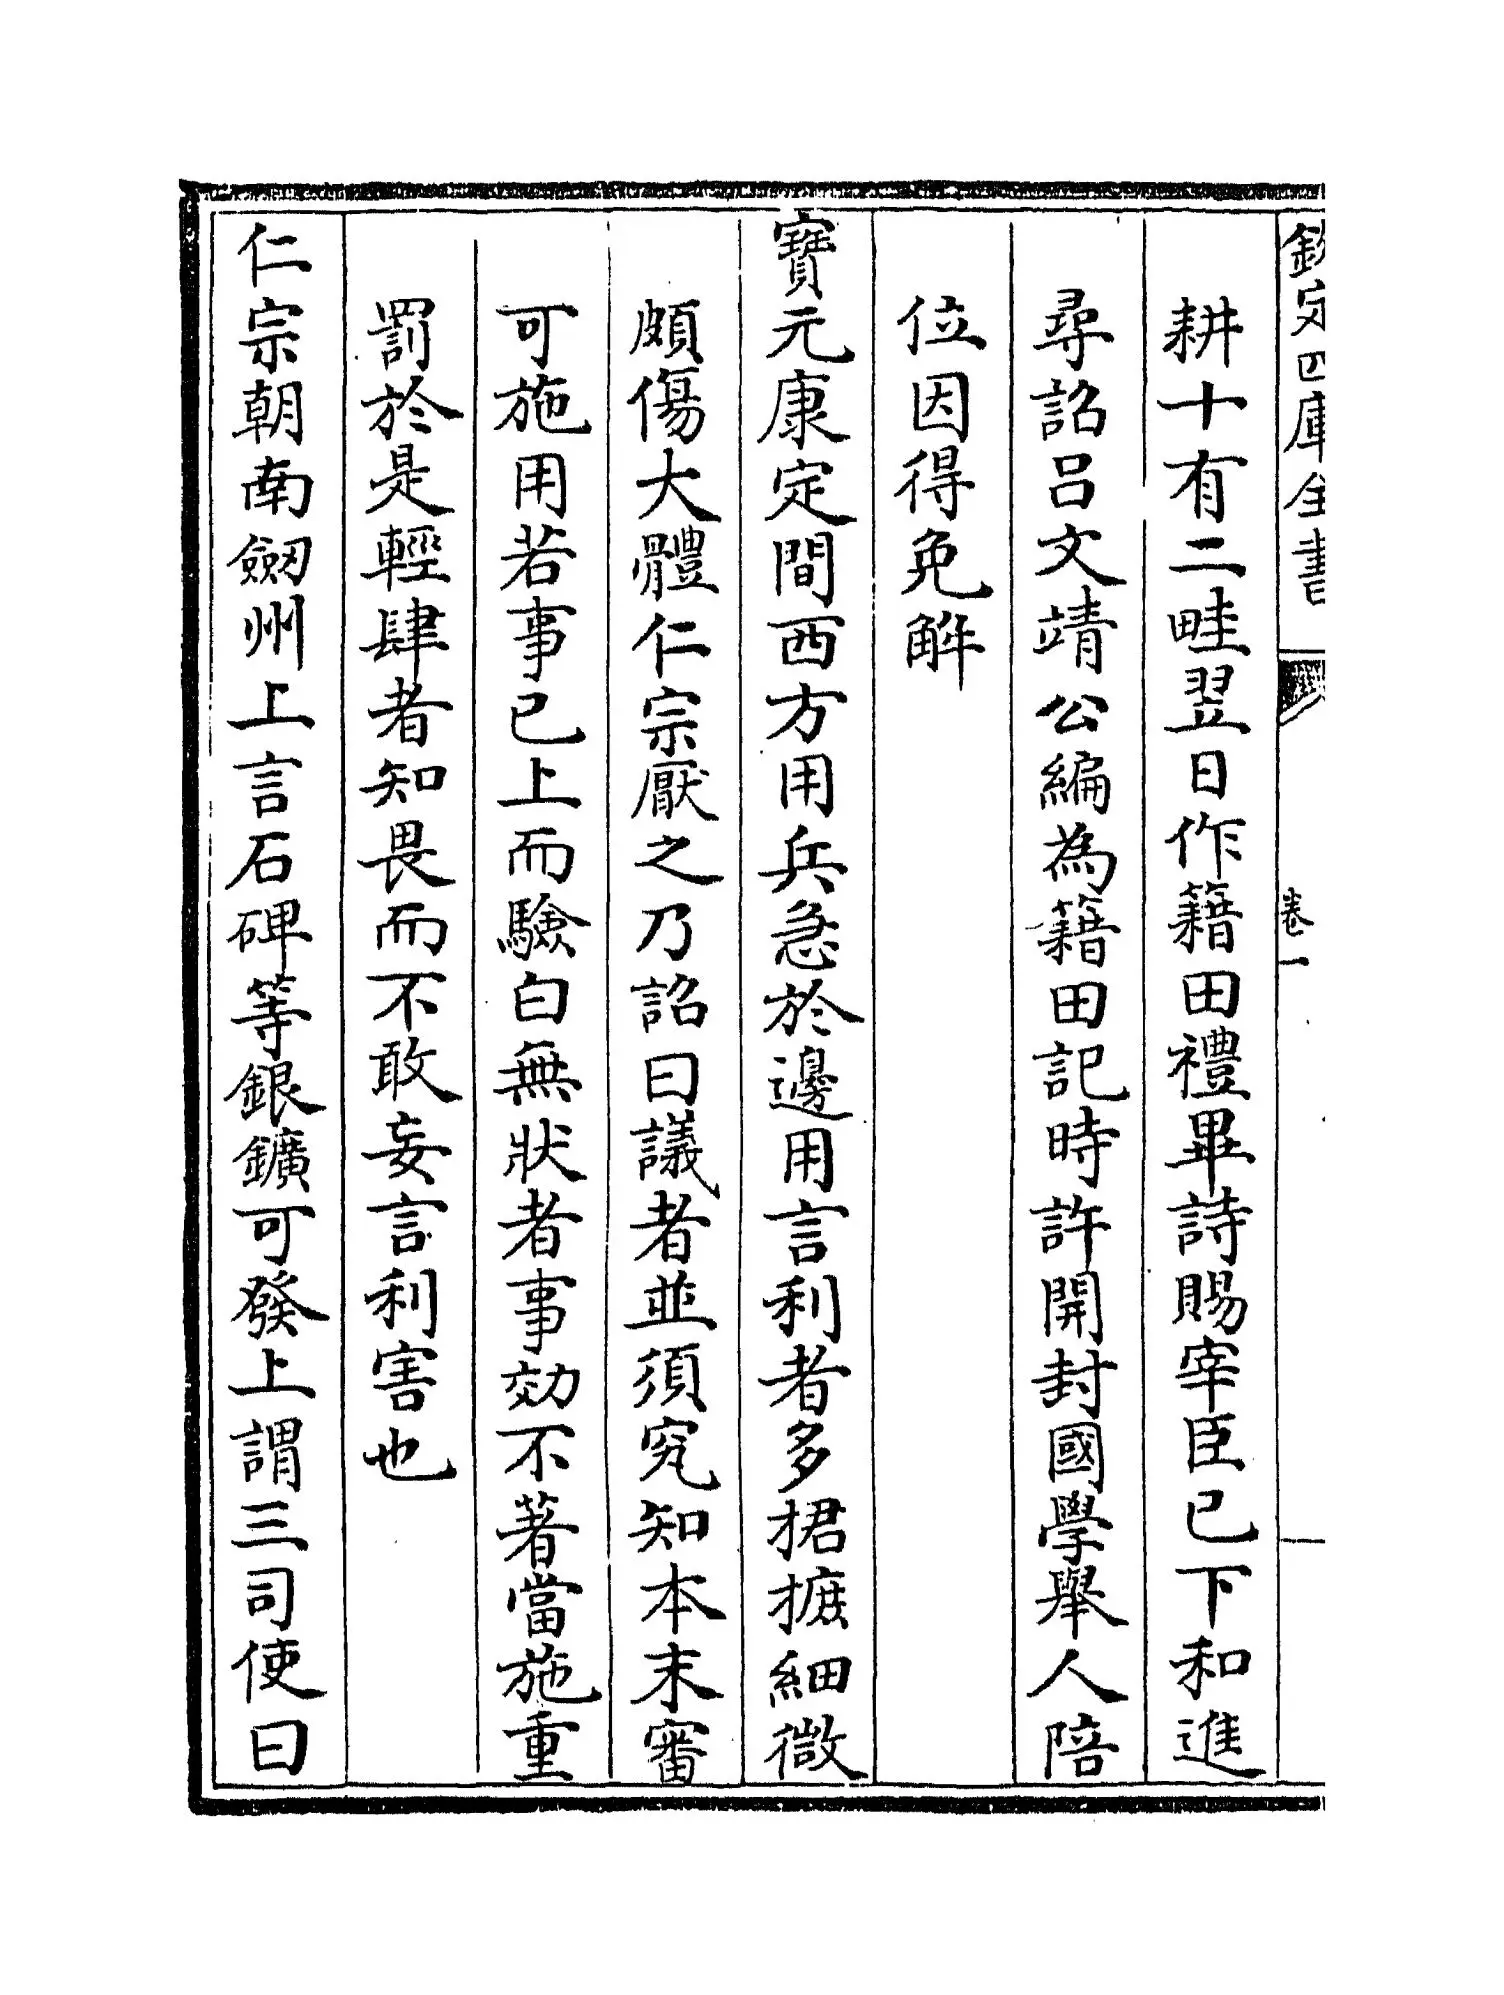 欽定四庫全書
卷一
耕十有二畦翌日作籍田禮畢詩賜宰臣已下和進
尋詔呂文靖公編為籍田記時許開封國學舉人陪
位因得免解
寶元康定間西方用兵急於邊用言利者多捃摭細微
頗傷大體仁宗厭之乃詔曰議者並須究知本末審
可施用若事已上而驗白無狀者事効不著當施重
罰於是輕肆者知畏而不敢妄言利害也
仁宗朝南劔州上言石碑等銀鑛可發上謂三司使曰